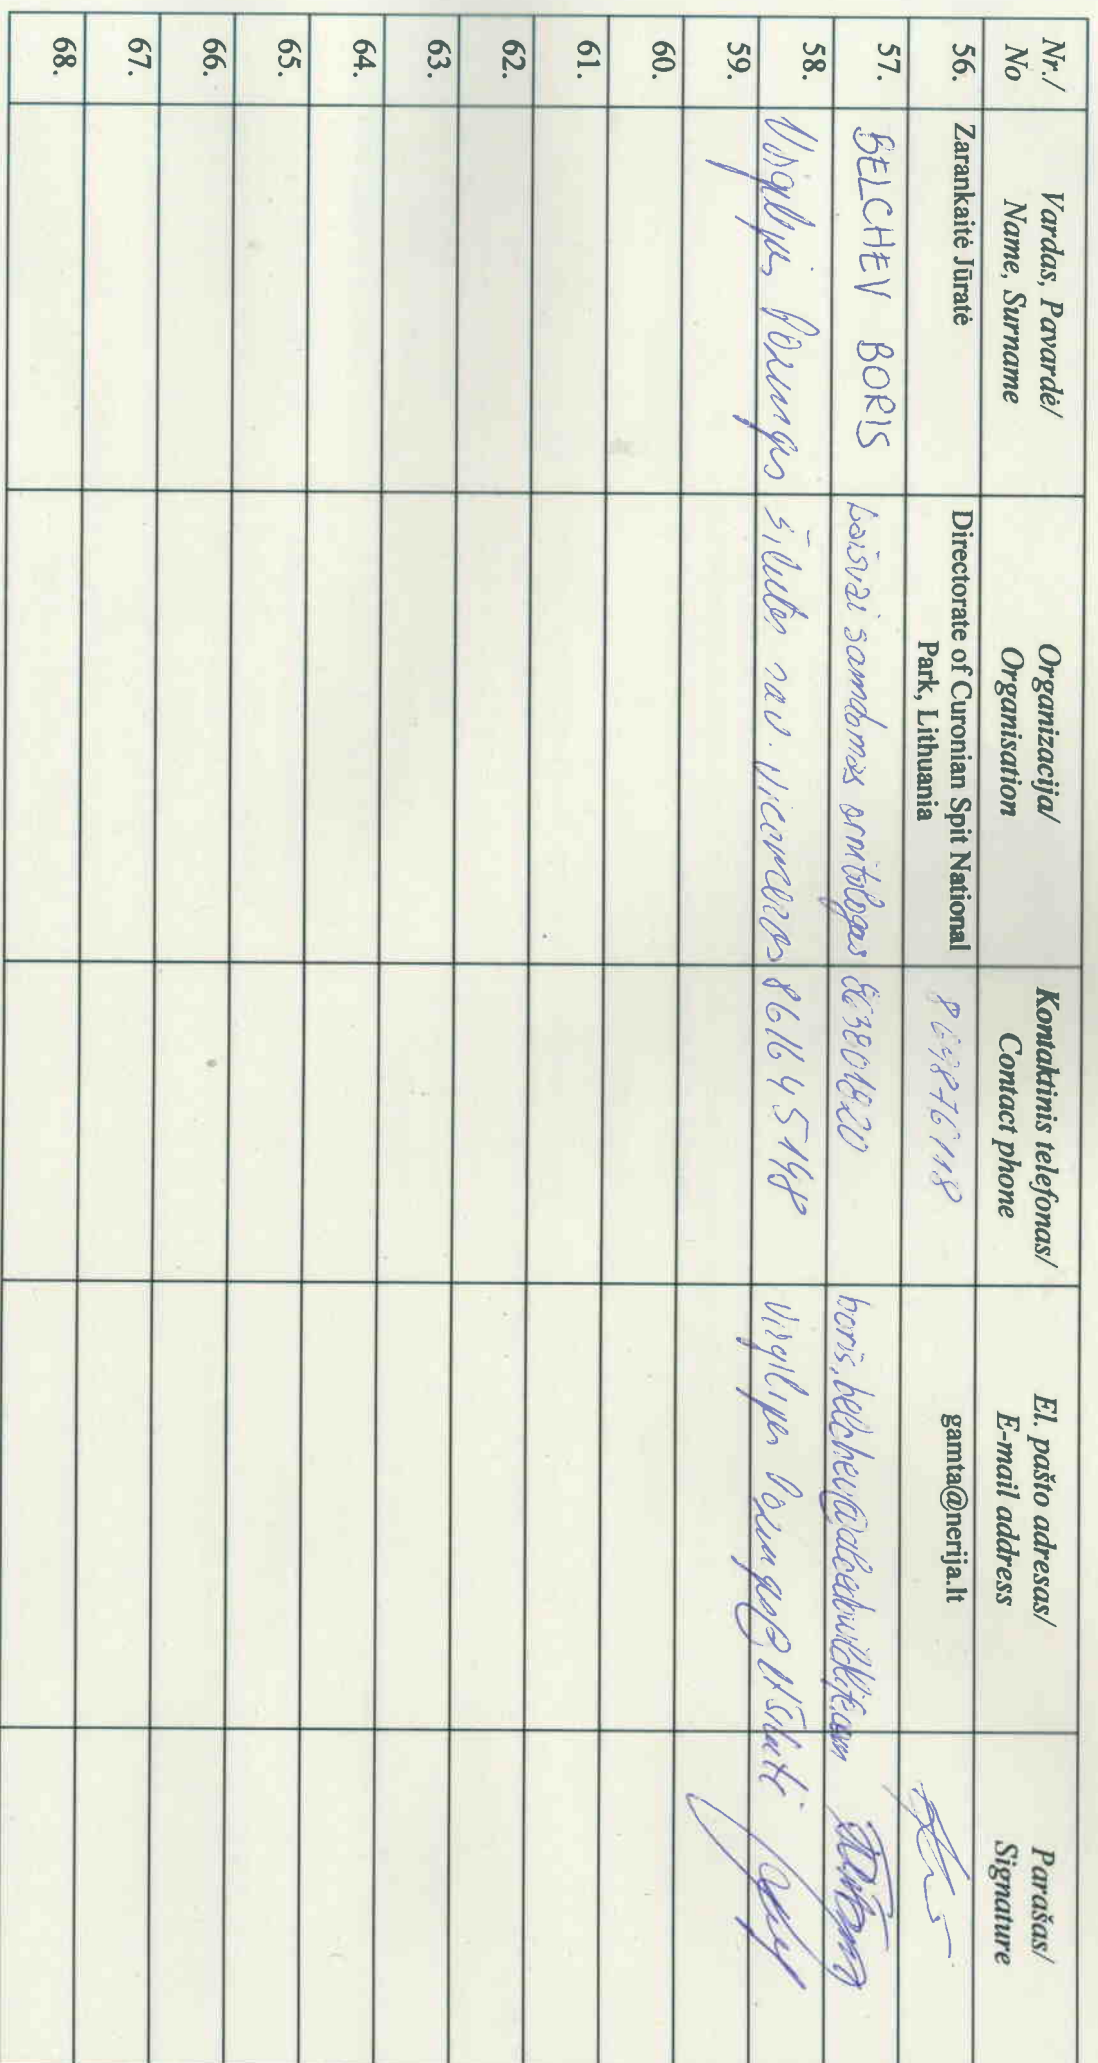 Nr./ No
Vardas, Pavardė/ Name, Surname
Organizacija/ Organisation
Kontaktinis telefonas/ Contact phone
El. pašto adresas/ E-mail address
Parašas/ Signature
56.
Zarankaitė Jūratė
Directorate of Curonian Spit National
Park, Lithuania
gamta@nerija.lt
57.
BELCHEV BORIS
Laisvai samdomas ornitologas 863801820
58.
Virgilijus Pozingis
Šilutės rav. 861645198
59.
60.
61.
62.
63.
64.
65.
66.
67.
68.